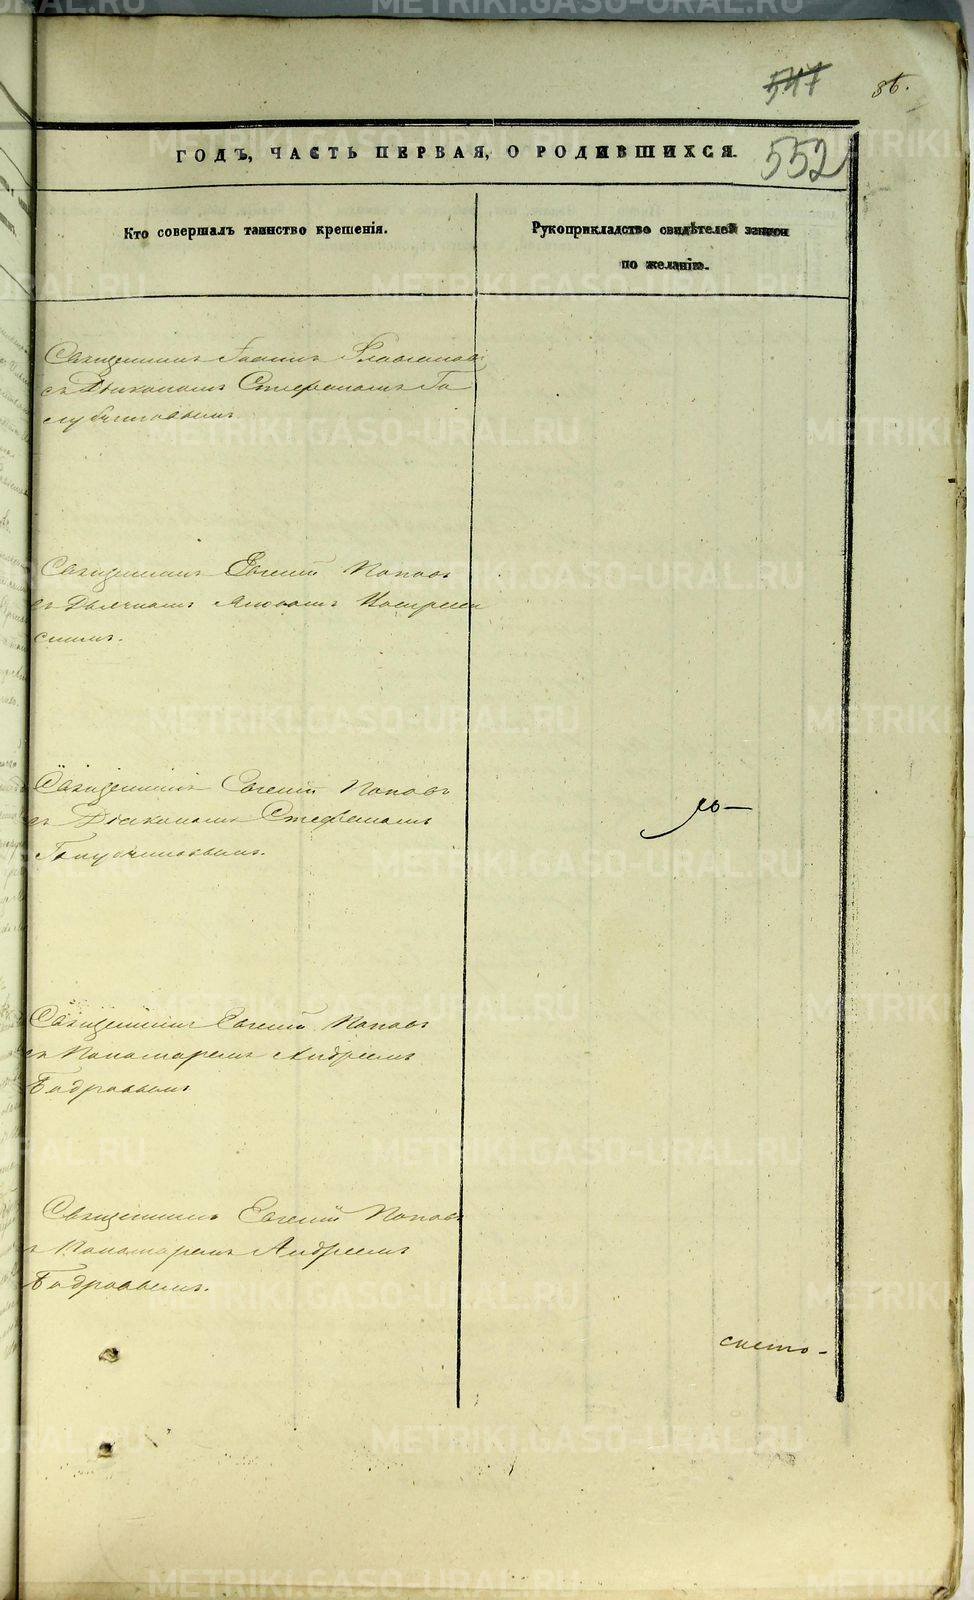 547
86.
ГОДЪ, ЧАСТЬ ПЕРВАЯ, О РОДИВШИХСЯ.
552
Кто совершалъ таинство крещенія.
Рукоприкладство свидѣтелей записи
по желанію.
Священникъ Іоаннъ
съ Діакономъ Стефаномъ Го
лубчиковымъ.
Священникъ Евгеній Поповъ
съ Дьячкомъ
скимъ.
Священникъ Евгеній Поповъ
съ Діакономъ Стефаномъ
Голубчиковымъ.
ю-
Священникъ Евгеній Поповъ
съ Пономаремъ Андреемъ
Бодровымъ
Священникъ Евгеній Поповъ
съ Пономаремъ Андреемъ
Бодровымъ.
METRIKI.GASO-URAL.RU